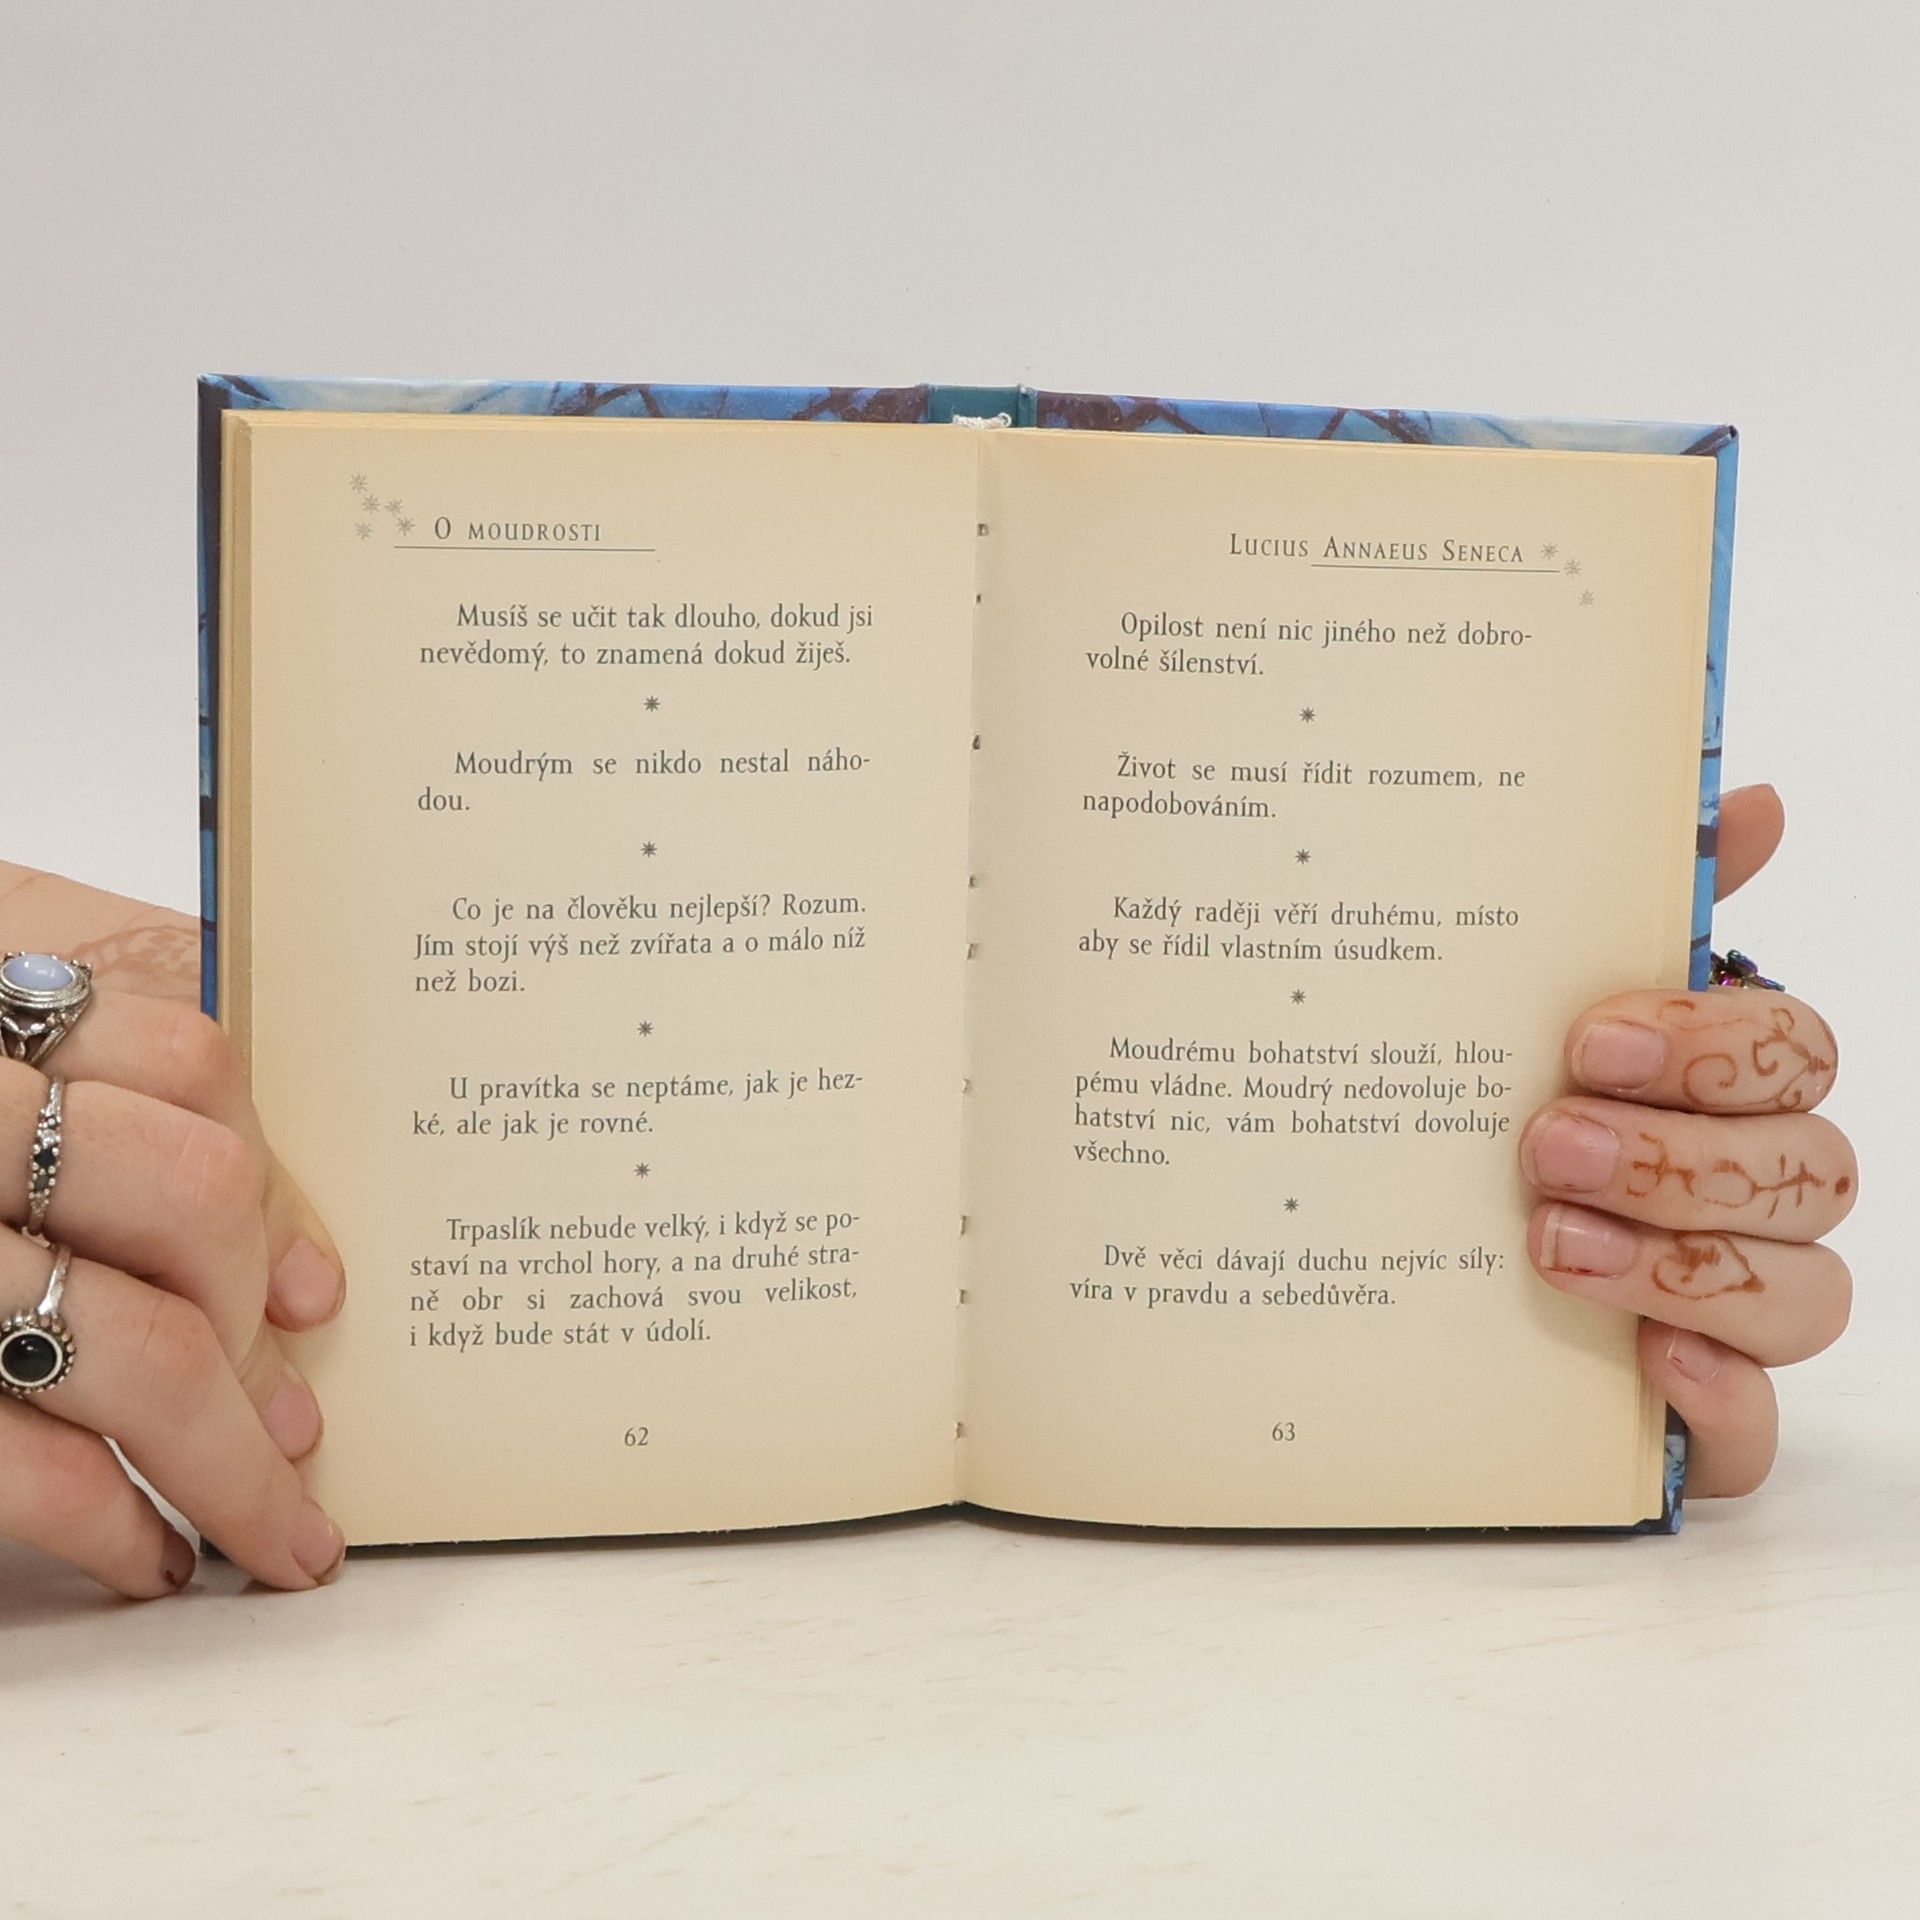 O MOUDROSTI
Musíš se učit tak dlouho, dokud jsi
nevědomý, to znamená dokud žiješ.
Moudrým se nikdo nestal náho-
dou.
Co je na člověku nejlepší? Rozum.
Jím stojí výš než zvířata a o málo níž
než bozi.
U pravítka se neptáme, jak je hez-
ké, ale jak je rovné.
Trpaslík nebude velký, i když se po-
staví na vrchol hory, a na druhé stra-
ně obr si zachová svou velikost,
i když bude stát v údolí.
62
LUCIUS ANNAEUS SENECA
Opilost není nic jiného než dobro-
volné šílenství.
Život se musí řídit rozumem, ne
napodobováním.
Každý raději věří druhému, místo
aby se řídil vlastním úsudkem.
Moudrému bohatství slouží, hlou-
pému vládne. Moudrý nedovoluje bo-
hatství nic, vám bohatství dovoluje
všechno.
Dvě věci dávají duchu nejvíc síly:
víra v pravdu a sebedůvěra.
63